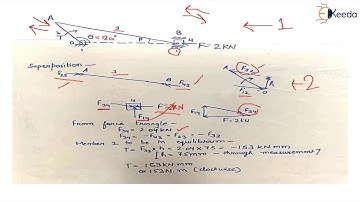 Keeda
A
3
B
4
2
θ=120°
φ
F=2kN
1
Superposition –
F23
A
3
B
F43
F32
F12
h
2
F34
4
F14
F=2kN
F34
F14
F=2kN
From force triangle –
F34 = 2.04 kN
F34 = -F43 = F23 = -F32
Member 2 to be in equilibrium –
T = F32 * h = 2.04 * 75 = -153 kN.mm
[h = 75mm – through measurement]
T = 153 kN.mm
or 153 N.m (clockwise)